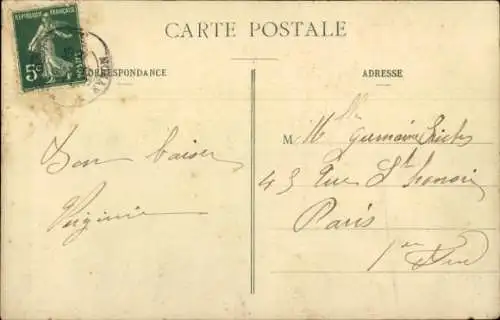 REPUBLIQUE FRANÇAISE
5c
POSTES
CARTE POSTALE
CORRESPONDANCE
ADRESSE
M Mlle Germaine
Bon baiser
43 Rue St honoré
Virginie
Paris
1er